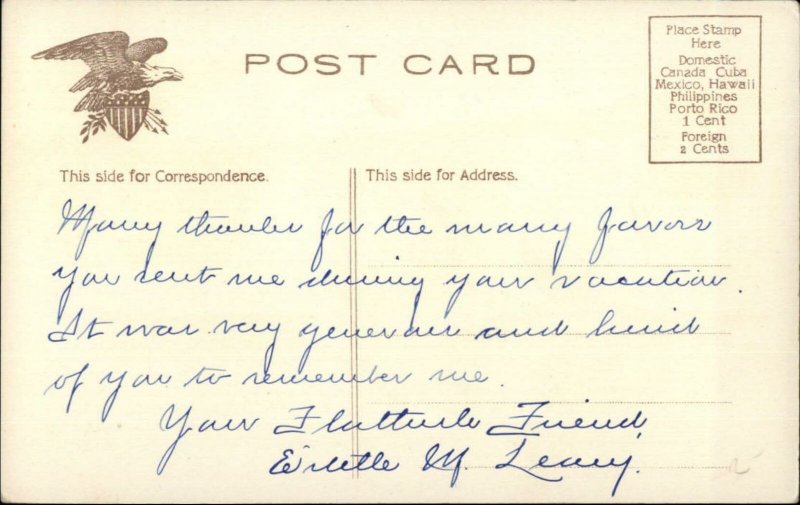 POST CARD
Place Stamp
Here
Domestic
Canada Cuba
Mexico, Hawaii
Philippines
Porto Rico
1 Cent
Foreign
2 Cents
This side for Correspondence.
This side for Address.
Many thanks for the many favors
you sent me during your vacation.
It was very generous and kind
of you to remember me.
Your Friend,
M. Leary.